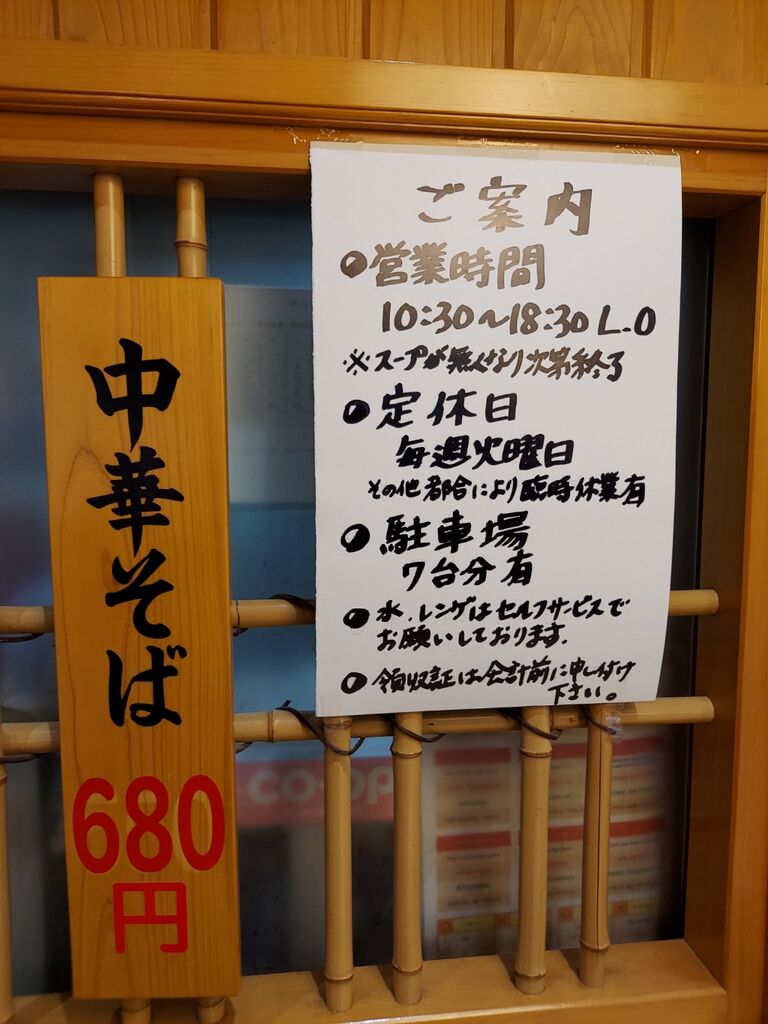 中華そば
680
円
ご案内
●営業時間
10:30～18:30 L.O
※スープが無くなり次第終了
●定休日
毎週火曜日
その他都合により臨時休業有
●駐車場
7台分有
●水、レンゲはセルフサービスで
お願いしております。
●領収証は会計前に申し付け
下さい。
co-op